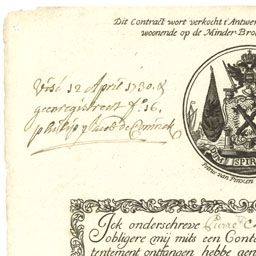 Dit Contract wort verkocht t'Antwer
woonende op de Minder Bro
Visé 12 April 1730 &
geenregistreert f.° 16,
philips Jacob de Coninck
SPIR
Ick onderschreve Pierre C
obligere mij mits een Conta
tentement ontfangen hebbe gen